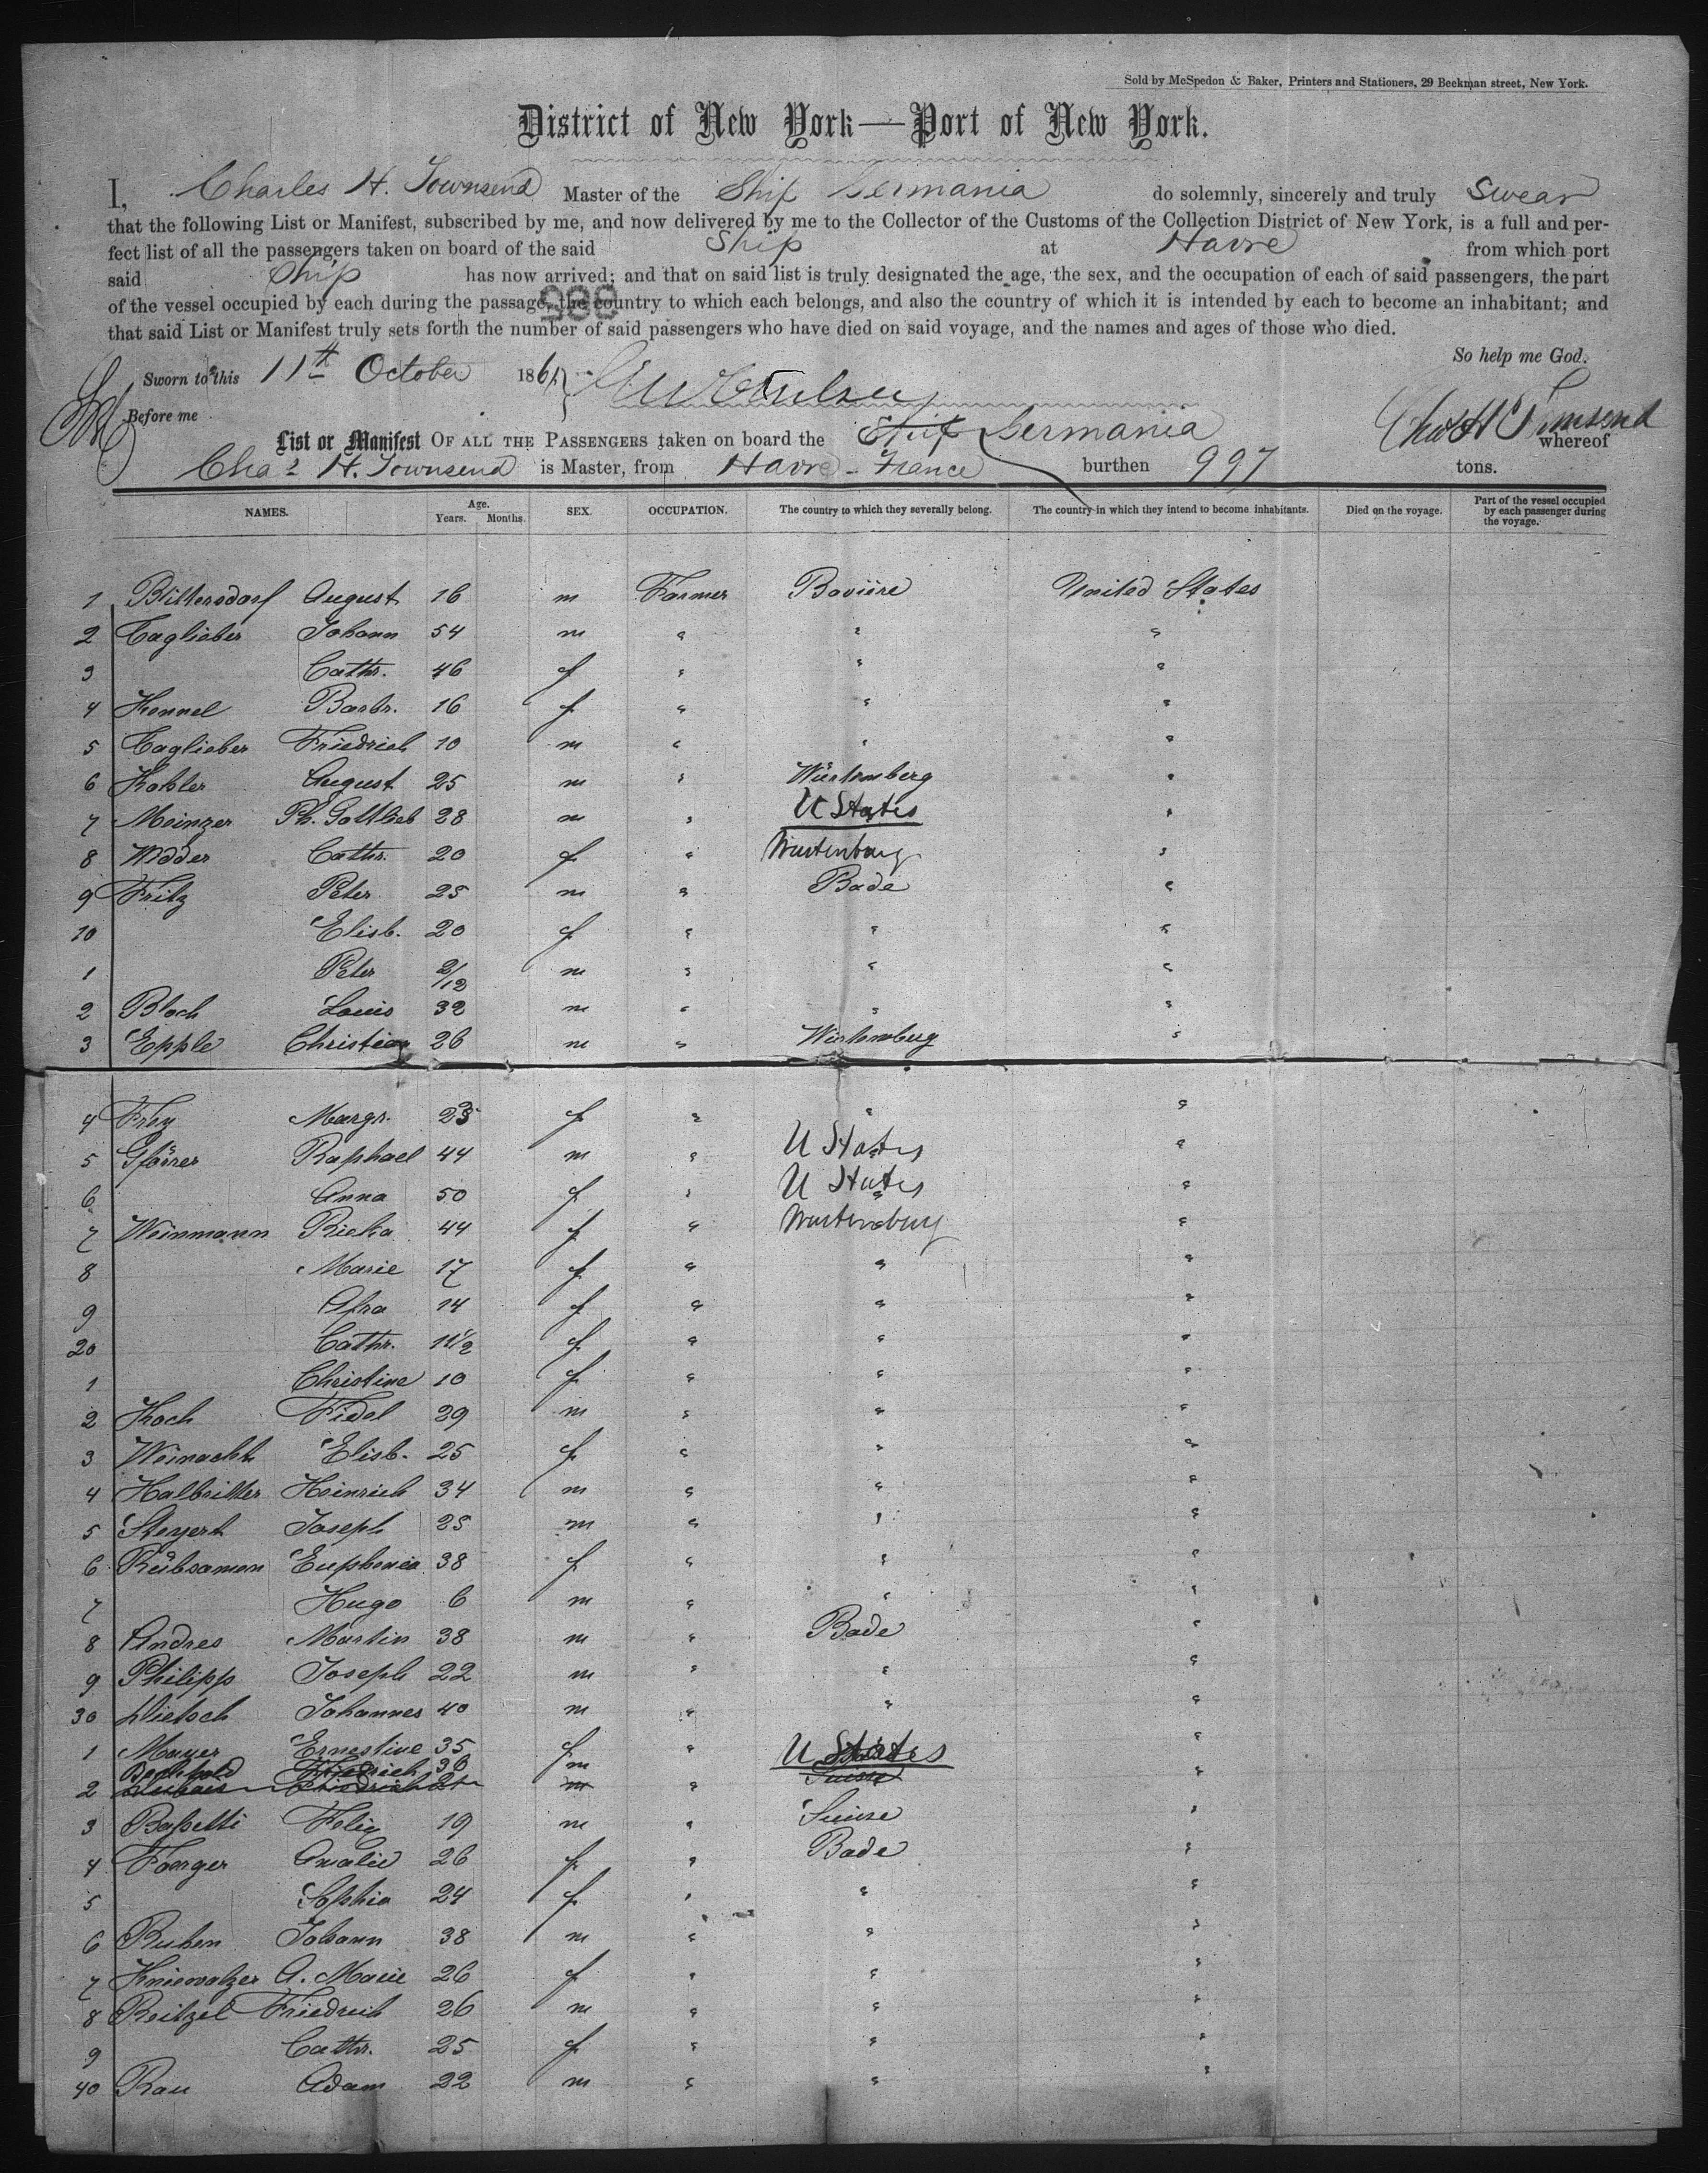 Sold by McSpedon & Baker, Printers and Stationers, 29 Beekman street, New York.
District of New York—Port of New York.
I, Charles H. Townsend Master of the Ship Germania do solemnly, sincerely and truly swear
that the following List or Manifest, subscribed by me, and now delivered by me to the Collector of the Customs of the Collection District of New York, is a full and per-
fect list of all the passengers taken on board of the said Ship at Havre from which port
said Ship has now arrived; and that on said list is truly designated the age, the sex, and the occupation of each of said passengers, the part
of the vessel occupied by each during the passage, the country to which each belongs, and also the country of which it is intended by each to become an inhabitant; and
that said List or Manifest truly sets forth the number of said passengers who have died on said voyage, and the names and ages of those who died.
So help me God.
Sworn to this 11th October 1861
Before me
Chas H Townsend
List or Manifest OF ALL THE PASSENGERS taken on board the Ship Germania whereof
Chas H. Townsend is Master, from Havre - France burthen 997 tons.
NAMES. Age. Years. Months. SEX. OCCUPATION. The country to which they severally belong. The country in which they intend to become inhabitants. Died on the voyage. Part of the vessel occupied by each passenger during the voyage.
1 Bittersdorf August 16 m Farmer Bavière United States
2 Taglieber Johann 54 m " " "
3 Cathr. 46 f " " "
4 Hennel Barbr. 16 f " " "
5 Taglieber Friedrich 10 m " " "
6 Kohler August 25 m " Würtemberg "
7 Meinzer Ph. Gottlieb 28 m " U States "
8 Widder Cathr. 20 f " Wurtenburg "
9 Fritz Peter 25 m " Bade "
10 Elisb. 20 f " " "
1 Peter 2/12 m " " "
2 Bloch Louis 32 m " " "
3 Epple Christian 26 m " Würtemburg "
4 Frey Margr. 23 f " " "
5 Gförrer Raphael 44 m " U States "
6 Anna 50 f " U States "
7 Weinmann Ricka 44 f " Wurtemburg "
8 Marie 17 f " " "
9 Afra 14 f " " "
20 Cathr. 11 1/2 f " " "
1 Christine 10 f " " "
2 Koch Fidel 29 m " " "
3 Weinacht Elisb. 25 f " " "
4 Halbritter Heinrich 34 m " " "
5 Steyert Joseph 25 m " " "
6 Rübsamen Euphemia 38 f " " "
7 Hugo 6 m " " "
8 Andres Martin 38 m " Bade "
9 Philipp Joseph 22 m " " "
30 Dietsch Johannes 40 m " " "
1 Mayer Ernestine 35 f " U States "
Bechtold Friedrich 36 m
2 Friedrich m " Suisse "
3 Felix 19 m " Suisse "
4 Faenger Amalie 26 f " Bade "
5 Sophia 24 f " " "
6 Ruhen Johann 38 m " " "
7 Kniewalzer A. Marie 26 f " " "
8 Reitzel Friedrich 26 m " " "
9 Cathr. 25 f " " "
40 Rau Adam 22 m " " "